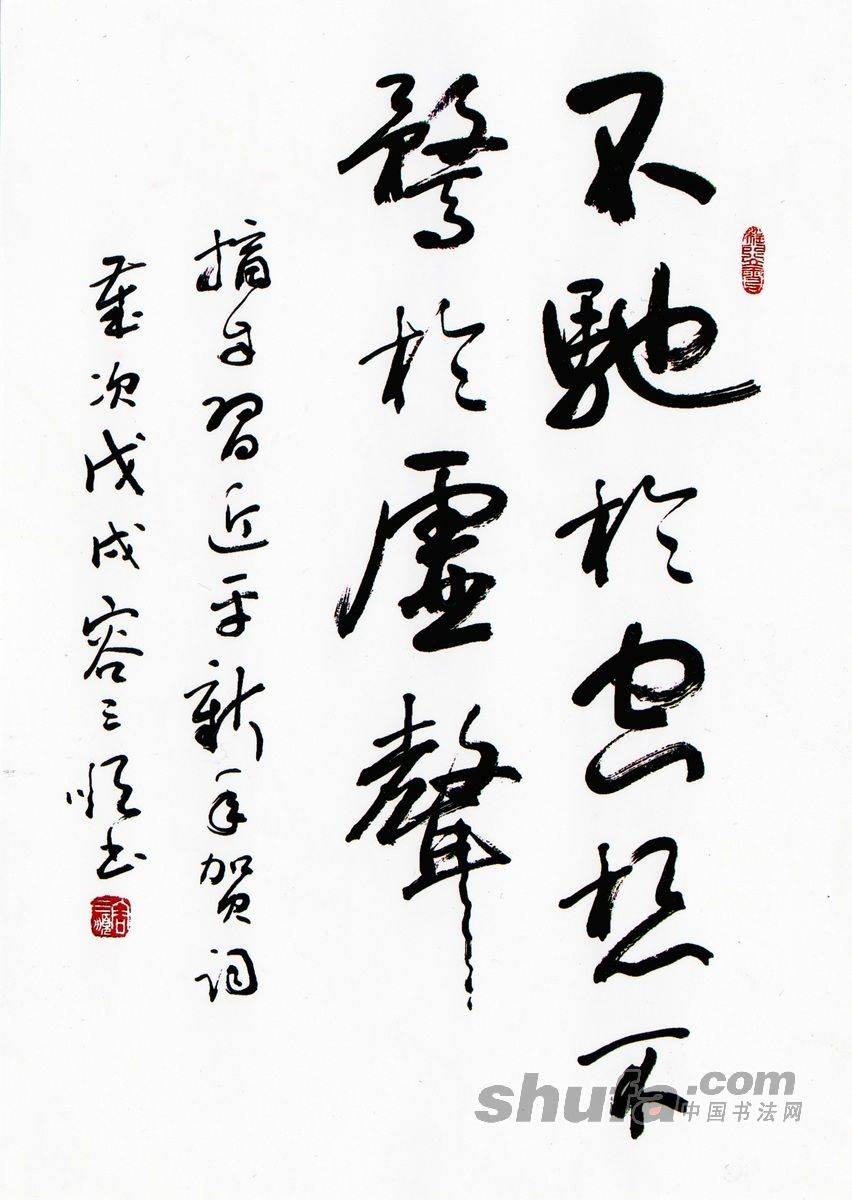 不馳於空想不
驁於虛聲
摘自習近平新年贺词
歲次戊戌容三順书
容三順
shufa.com
中国书法网